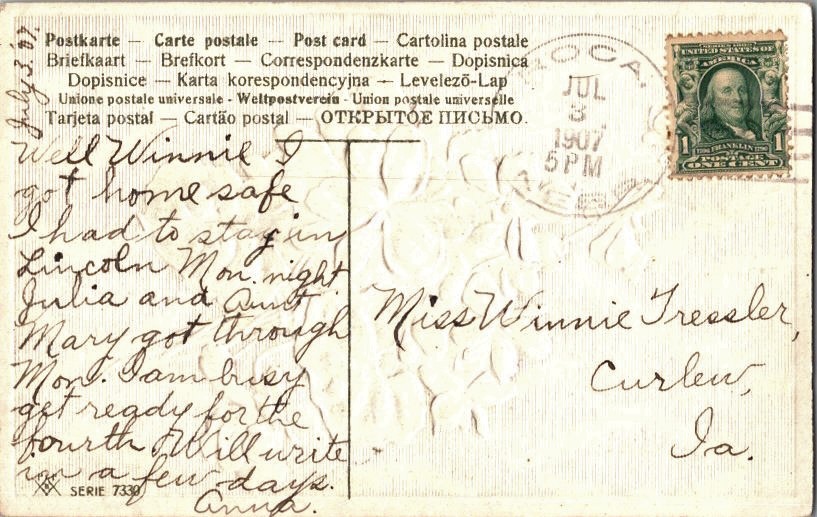 July 3. '07.
Postkarte — Carte postale — Post card — Cartolina postale
Briefkaart — Brefkort — Correspondenzkarte — Dopisnica
Dopisnice — Karta korespondencyjna — Levelező-Lap
Unione postale universale - Weltpostverein - Union postale universelle
Tarjeta postal — Cartão postal — ОТКРЫТОЕ ПИСЬМО.
JUL
3
1907
5 PM
SERIES 1902
UNITED STATES OF
AMERICA
1 FRANKLIN 1
POSTAGE
ONE CENT
Well Winnie I
got home safe
I had to stay in
Lincoln Mon. night
Julia and Aunt
Mary got through
Mon. I am busy
get ready for the
fourth. Will write
in a few days.
Anna.
Miss Winnie Tressler,
Curlew,
Ia.
SERIE 7330